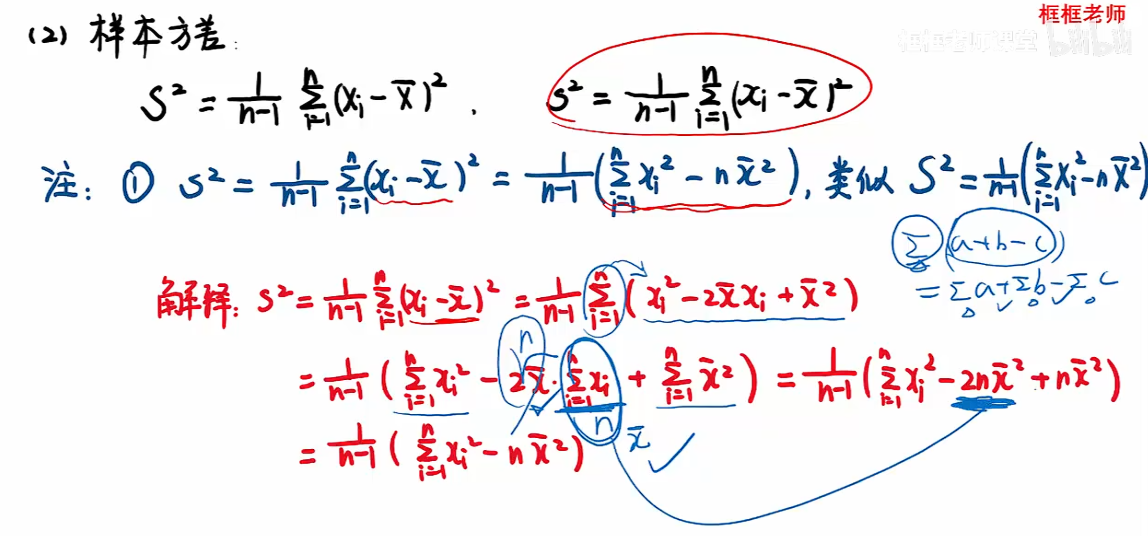 框框老师
框框老师课堂 bilibili
(2) 样本方差:
S² = 1/(n-1) Σ_{i=1}^{n} (X_i - X̄)², s² = 1/(n-1) Σ_{i=1}^{n} (x_i - x̄)²
注: ① s² = 1/(n-1) Σ_{i=1}^{n} (x_i - x̄)² = 1/(n-1) (Σ_{i=1}^{n} x_i² - n x̄²), 类似 S² = 1/(n-1) (Σ_{i=1}^{n} X_i² - n X̄²)
Σ (a+b-c)
= Σa + Σb - Σc
解释: s² = 1/(n-1) Σ_{i=1}^{n} (x_i - x̄)² = 1/(n-1) Σ_{i=1}^{n} (x_i² - 2x̄x_i + x̄²)
n
= 1/(n-1) (Σ_{i=1}^{n} x_i² - 2x̄ · Σ_{i=1}^{n} x_i + Σ_{i=1}^{n} x̄²) = 1/(n-1) (Σ_{i=1}^{n} x_i² - 2n x̄² + n x̄²)
n x̄
= 1/(n-1) (Σ_{i=1}^{n} x_i² - n x̄²)